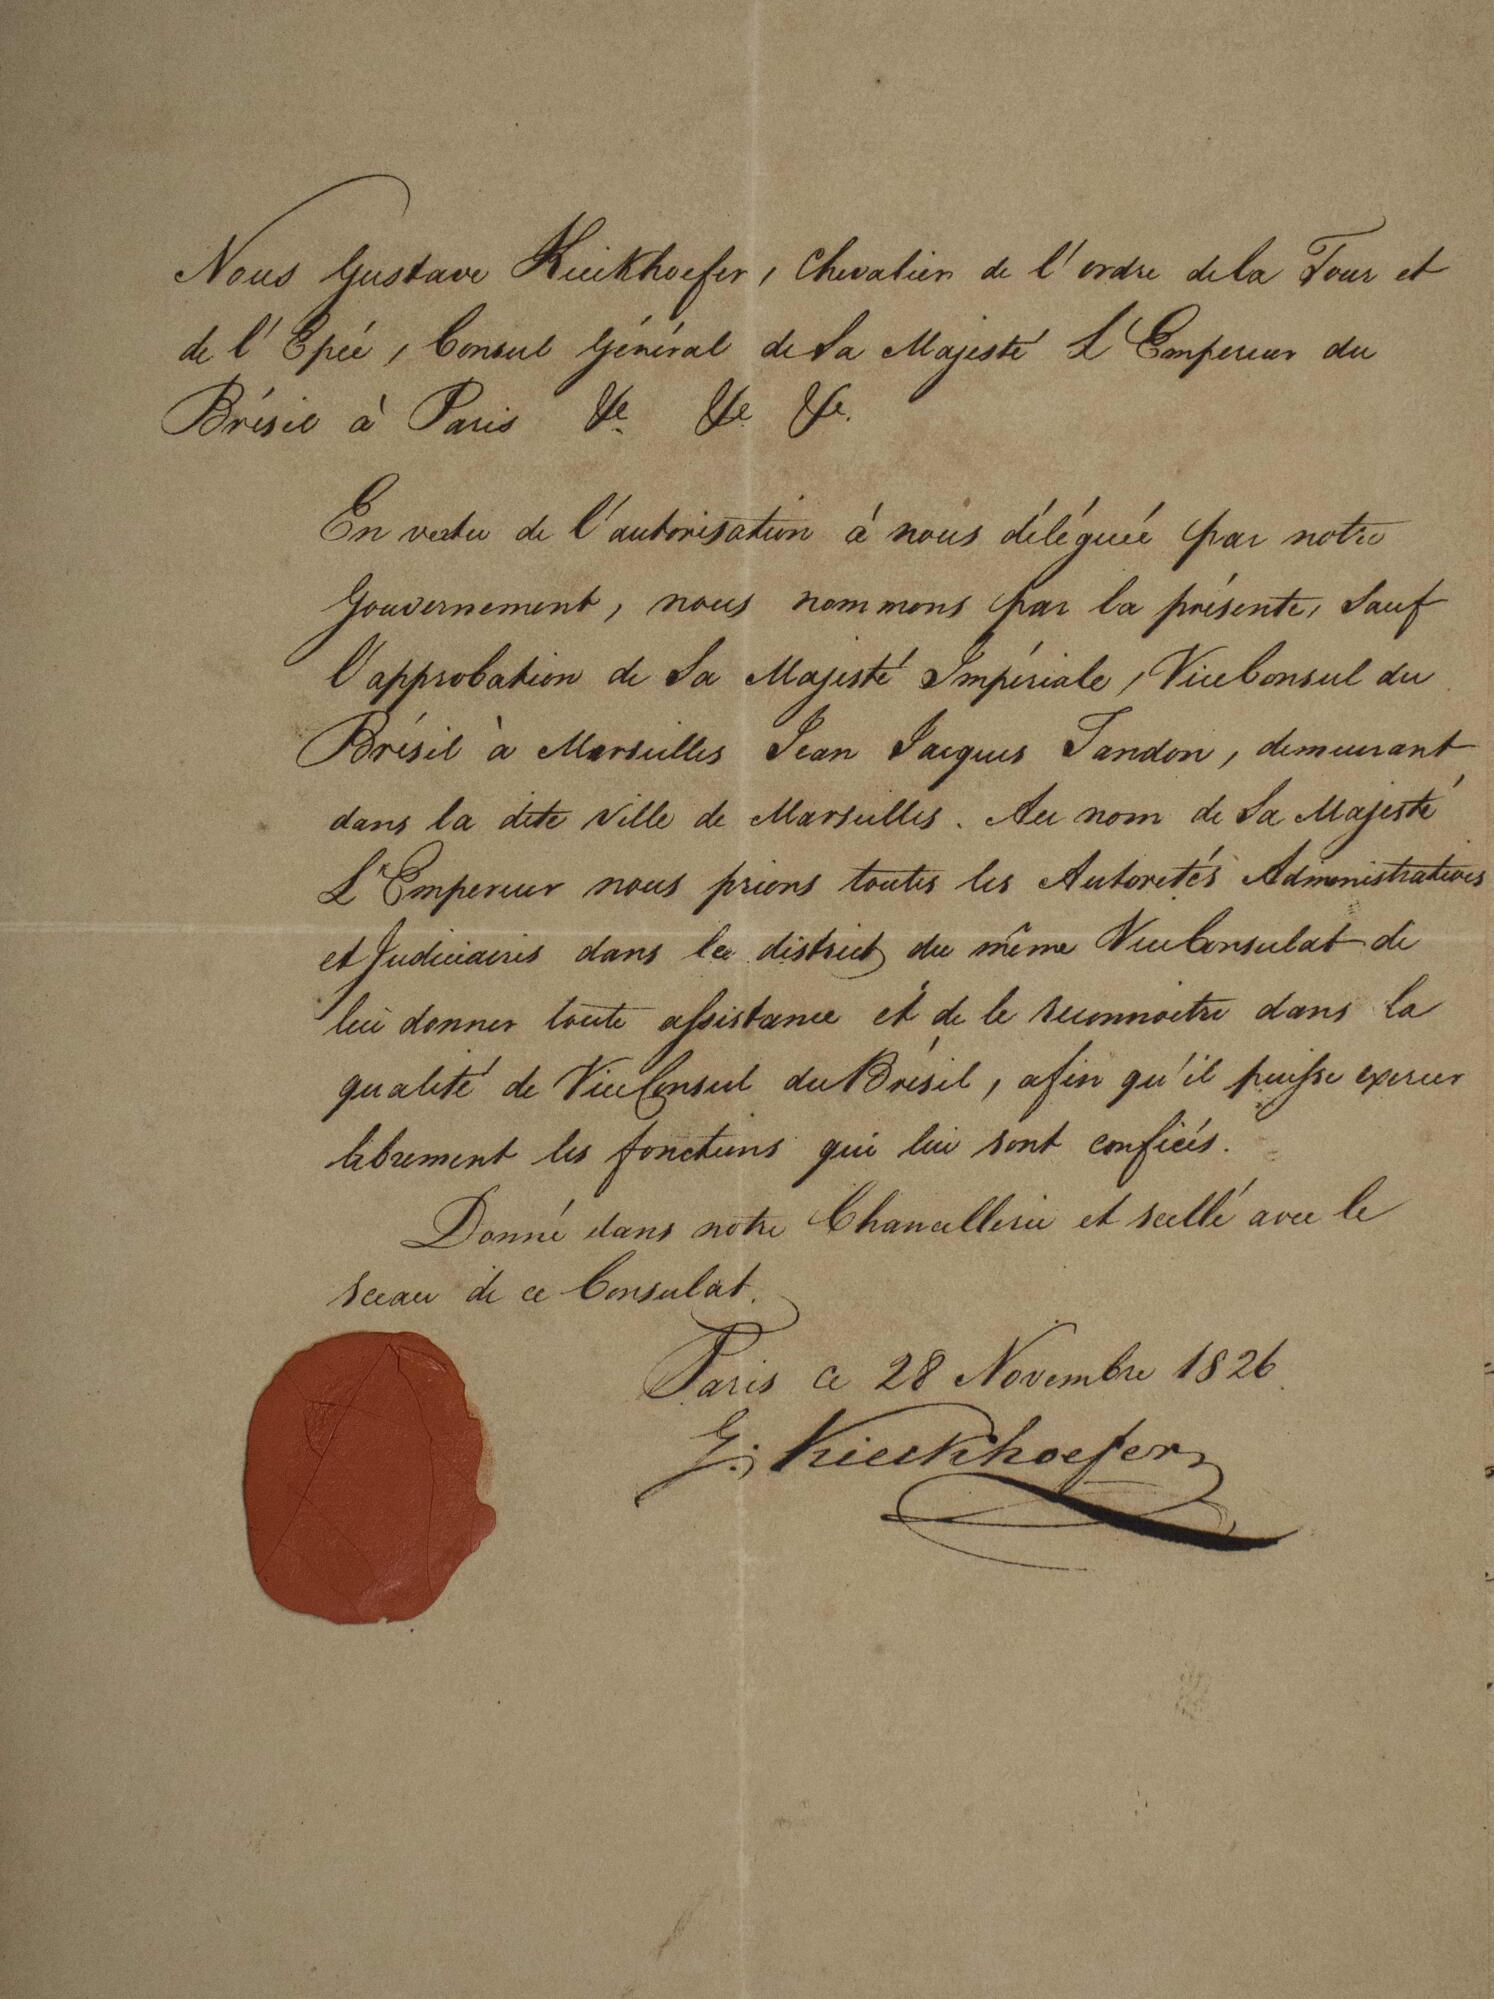 Nous Gustave Kieckhoefer, Chevalier de l'ordre de la Tour et
de l'Epée, Consul Général de Sa Majesté L'Empereur du
Brésil à Paris &c. &c. &c.
En vertu de l'autorisation à nous déléguée par notre
Gouvernement, nous nommons par la présente, sauf
l'approbation de Sa Majesté Impériale, Vice Consul du
Brésil à Marseilles Jean Jacques Tandon, demeurant
dans la dite ville de Marseilles. Au nom de Sa Majesté
L'Empereur nous prions toutes les Autorités Administratives
et Judiciaires dans le district du même Vice Consulat de
lui donner toute assistance et de le reconnoitre dans la
qualité de Vice Consul du Brésil, afin qu'il puisse exercer
librement les fonctions qui lui sont confiées.
Donné dans notre Chancellerie et scellé avec le
sceau de ce Consulat.
Paris ce 28 Novembre 1826
G. Kieckhoefer